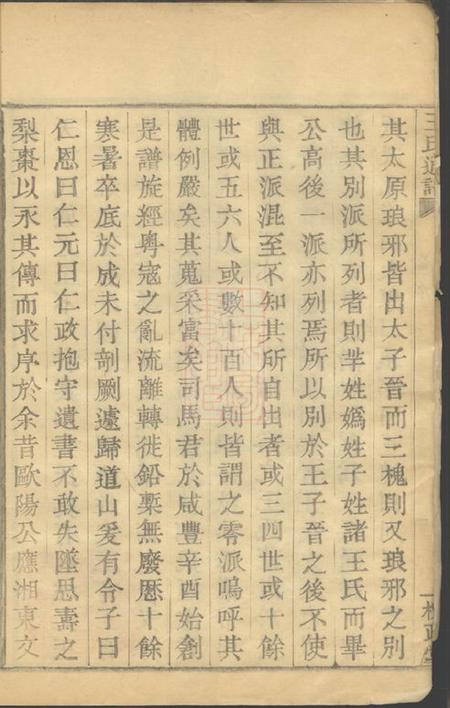 其太原琅邪皆出太子晉而三槐則又琅邪之別
也其別派所列者則芈姓嬀姓子姓諸王氏而畢
公高後一派亦列焉所以別於王子晉之後不使
與正派混至不知其所自出者或三四世或十餘
世或五六人或數十百人則皆謂之零派嗚呼其
體例嚴矣其蒐采富矣司馬君於咸豐辛酉始創
是譜旋經粵寇之亂流離轉徙鉛槧無廢歷十餘
寒暑卒底於成未付剞劂遽歸道山爰有令子曰
仁恩曰仁元曰仁政抱守遺書不敢失墜思壽之
梨棗以永其傳而求序於余昔歐陽公應湘東文